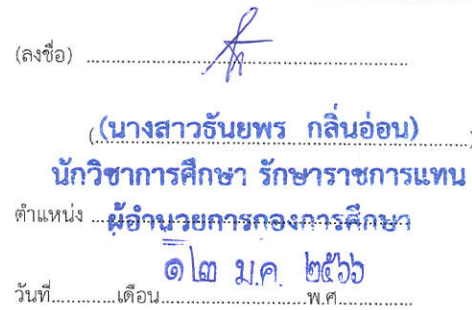 (ลงชื่อ) ............................................................
(นางสาวธันยพร กลิ่นอ่อน)
นักวิชาการศึกษา รักษาราชการแทน
ตำแหน่ง ผู้อำนวยการกองการศึกษา
๑๒ ม.ค. ๒๕๖๖
วันที่............เดือน..............................พ.ศ..............